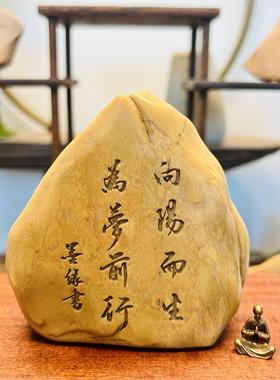 向陽而生
為夢前行
墨緣書